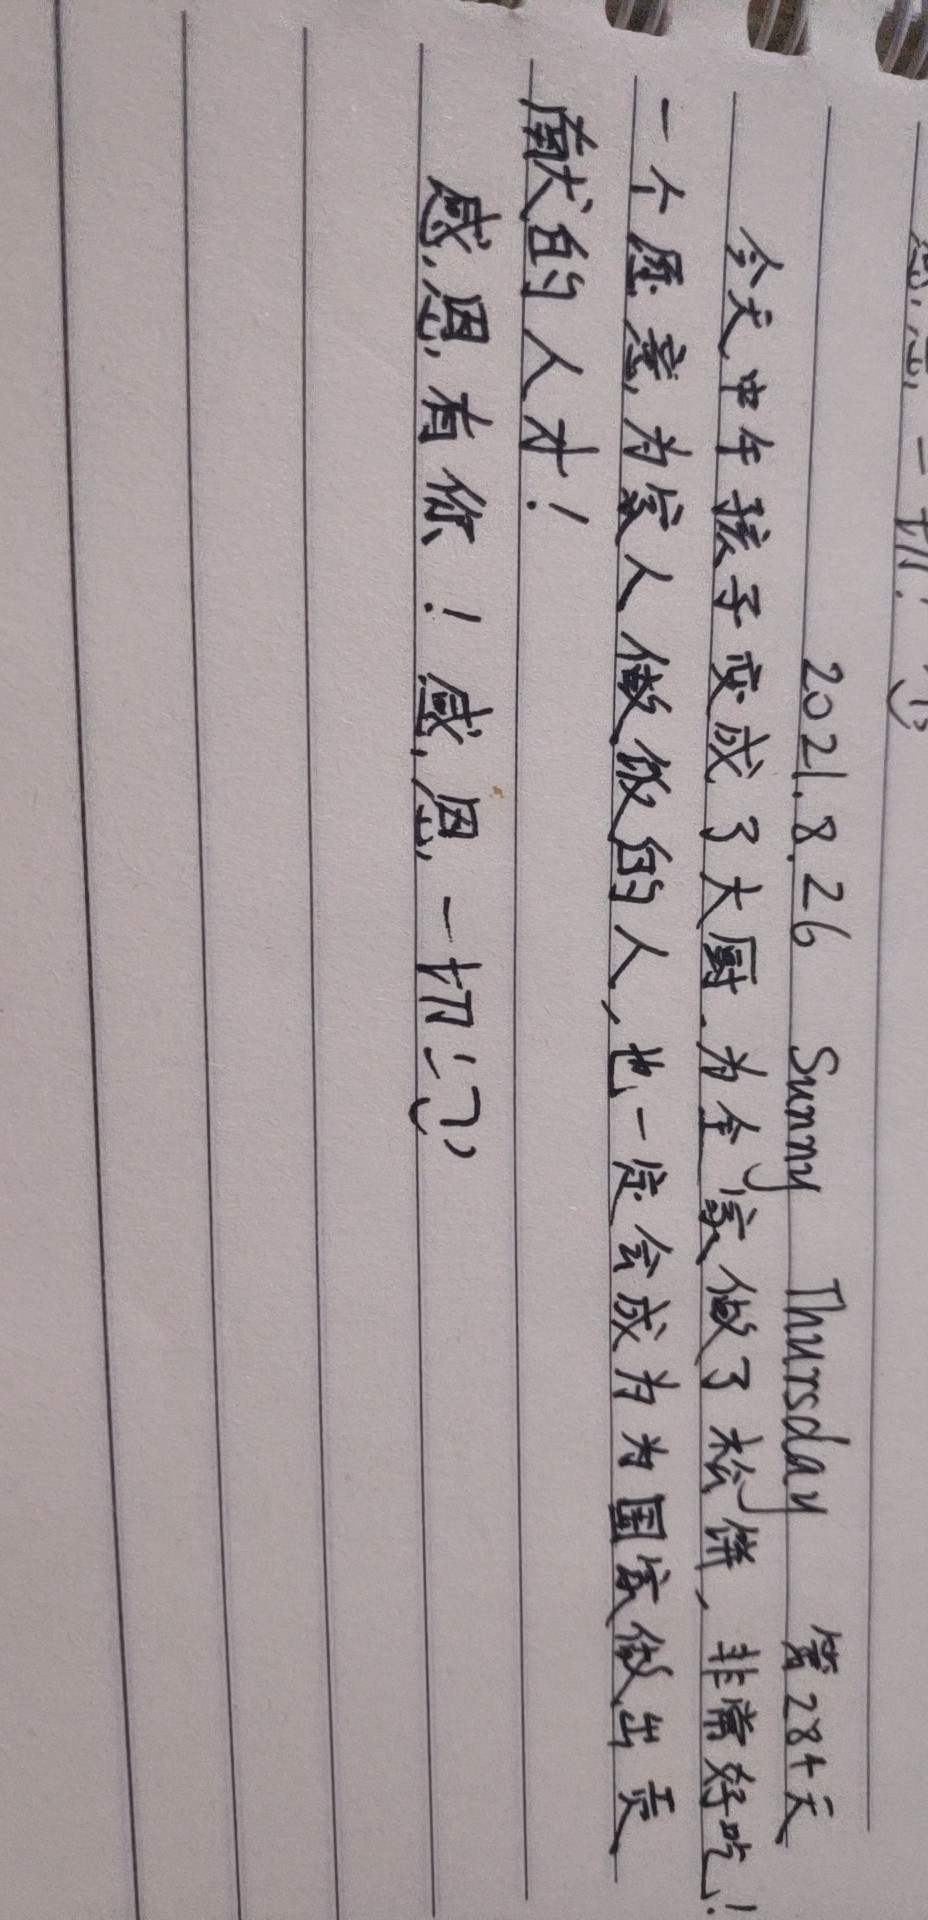 感恩一切!
2021.8.26 Sunny Thursday 第284天
今天中午孩子变成了大厨.为全家做了松饼,非常好吃!
一个愿意为家人做饭的人,也一定会成为为国家做出贡
献的人才!
感恩有你!感恩一切!